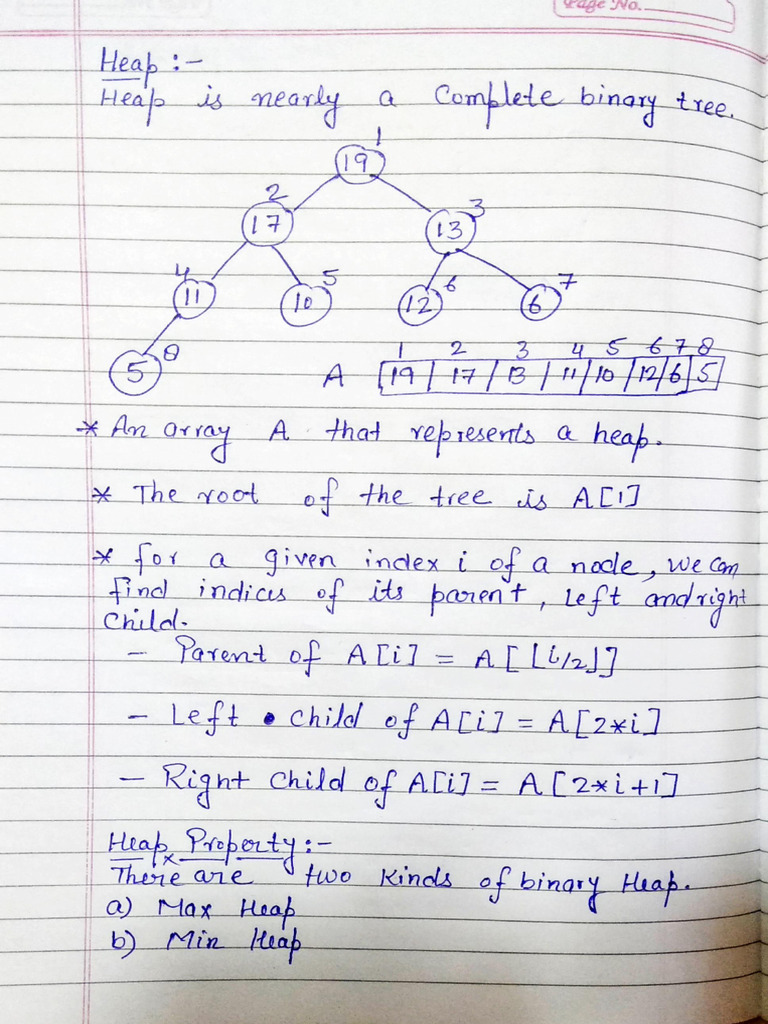 Page No.
Heap :-
Heap is nearly a complete binary tree.
1
19
2
3
17
13
4
5
6
7
11
10
12
6
8
5
1 2 3 4 5 6 7 8
A [19 | 17 | 13 | 11 | 10 | 12 | 6 | 5]
* An array A that represents a heap.
* The root of the tree is A[1]
* for a given index i of a node, we can
find indices of its parent, Left and right
child.
- Parent of A[i] = A[⌊i/2⌋]
- Left child of A[i] = A[2*i]
- Right child of A[i] = A[2*i+1]
Heap Property :-
There are two kinds of binary Heap.
a) Max Heap
b) Min Heap